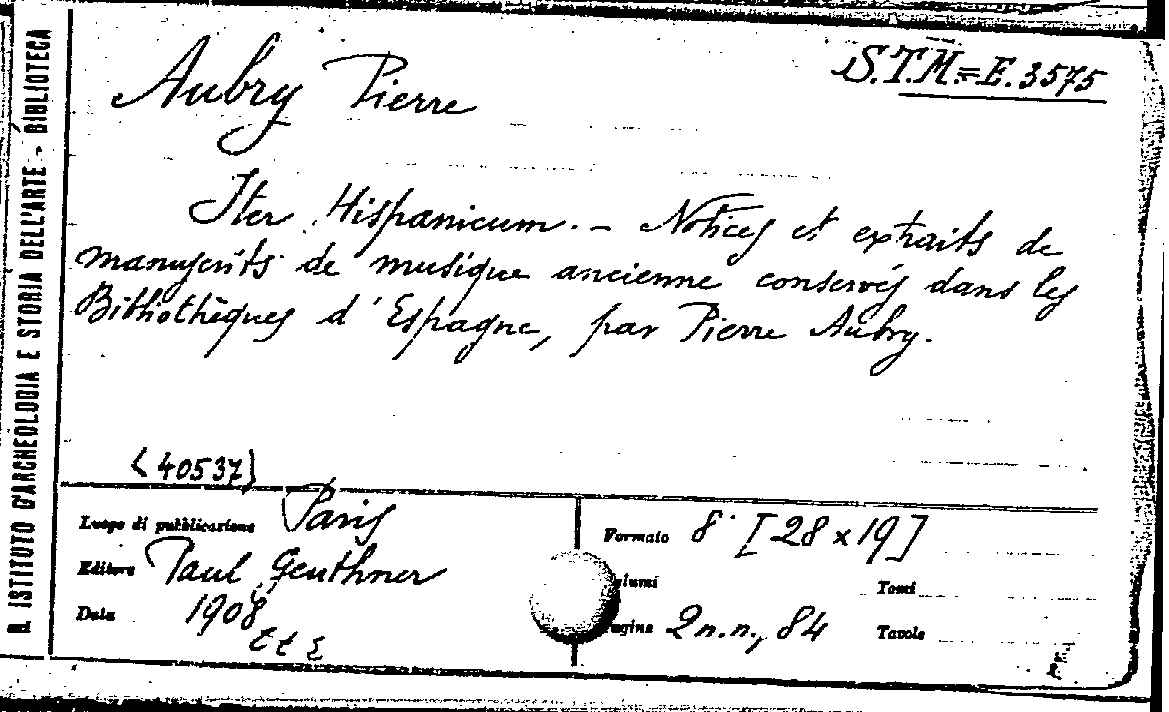 R. ISTITUTO D'ARCHEOLOGIA E STORIA DELL'ARTE - BIBLIOTECA
S.T.M.=E. 3575
Aubry Pierre
Iter Hispanicum. - Notices et extraits de
manuscrits de musique ancienne conservés dans les
Bibliothèques d'Espagne, par Pierre Aubry.
(40537)
Luogo di pubblicazione Paris
Editore Paul Geuthner
Data 1908
Formato 8° [28 x 19]
Volumi Tomi
Pagine 2 n.n., 84 Tavole